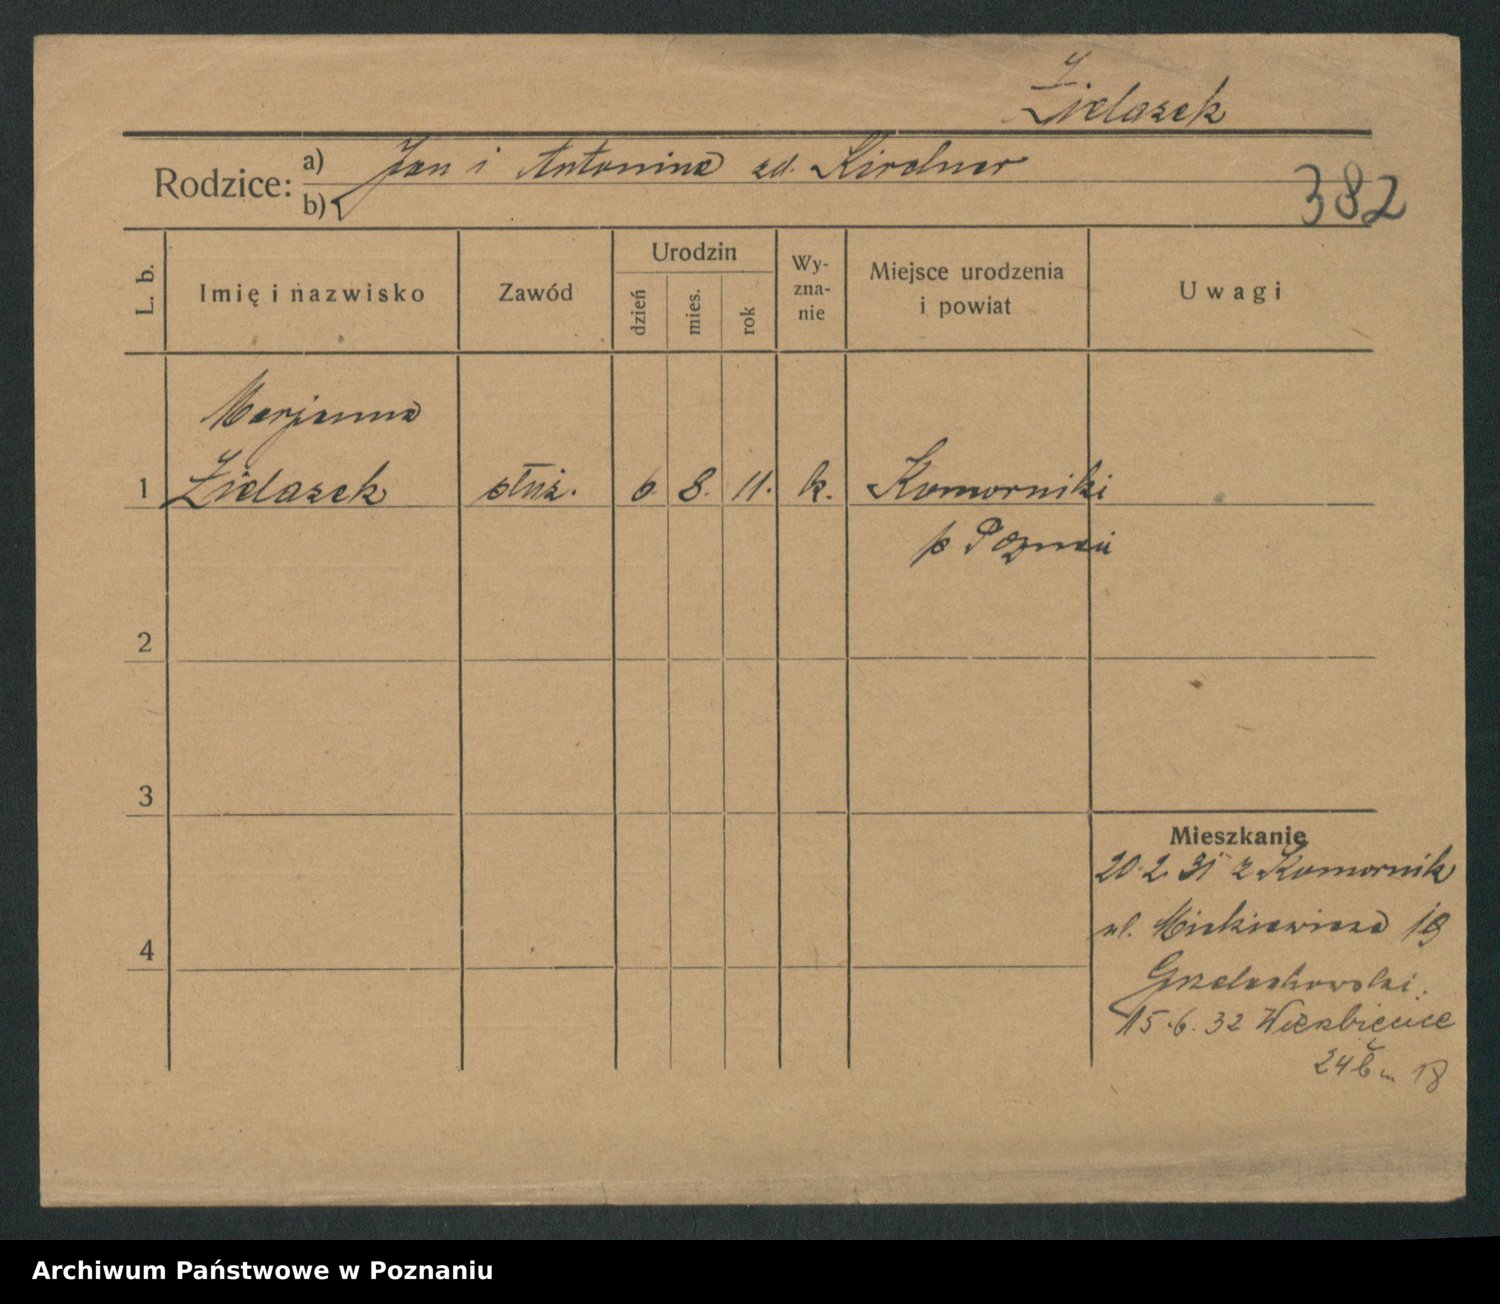 Zielazek
Rodzice: a) Jan i Antonina zd. Kirdner
b)
382
L. b.
Imię i nazwisko
Zawód
Urodzin
dzień
mies.
rok
Wy-
zna-
nie
Miejsce urodzenia
i powiat
Uwagi
Marjanna
1 Zielazek służ. 6. 8. 11. k. Komorniki
p Poznań
2
3
4
Mieszkanie
20.2.31 z Komornik
ul. Mickiewicza 19
15.6.32 Wierzbięcice
24b m 18
Archiwum Państwowe w Poznaniu